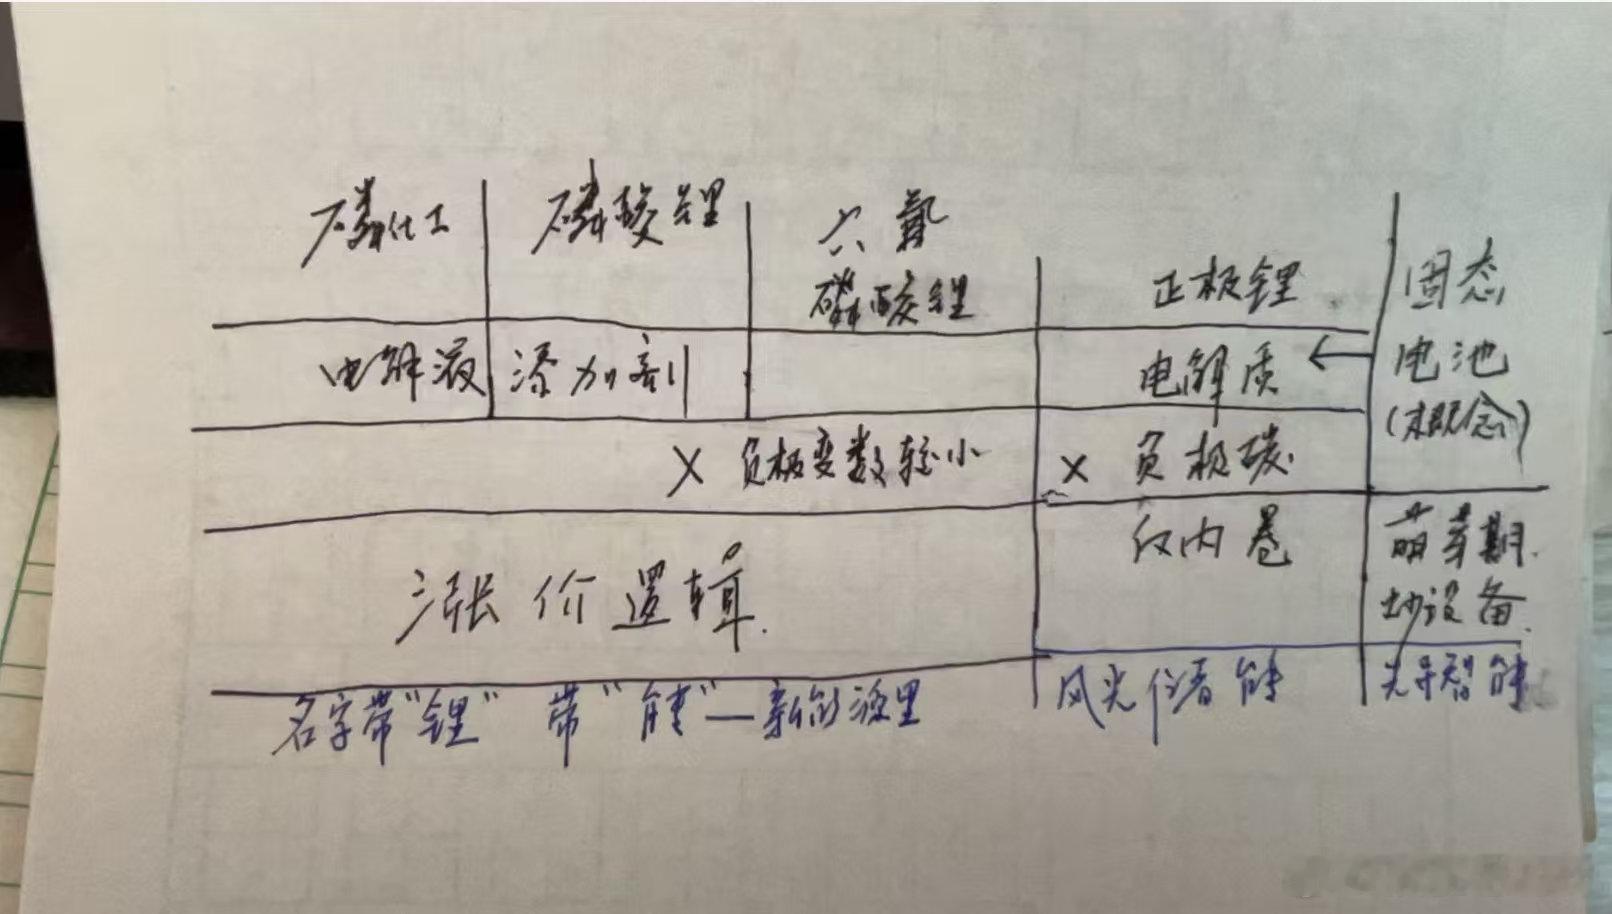 磷化工 磷酸锂 六氟
磷酸锂 正极锂 固态
电解液 添加剂 电解质 ← 电池
(概念)
× 负极变数较小 × 负极碳
内卷 萌芽期.
涨价逻辑. 炒设备.
名字带“锂” 带“能”— 风光储能 先导智能